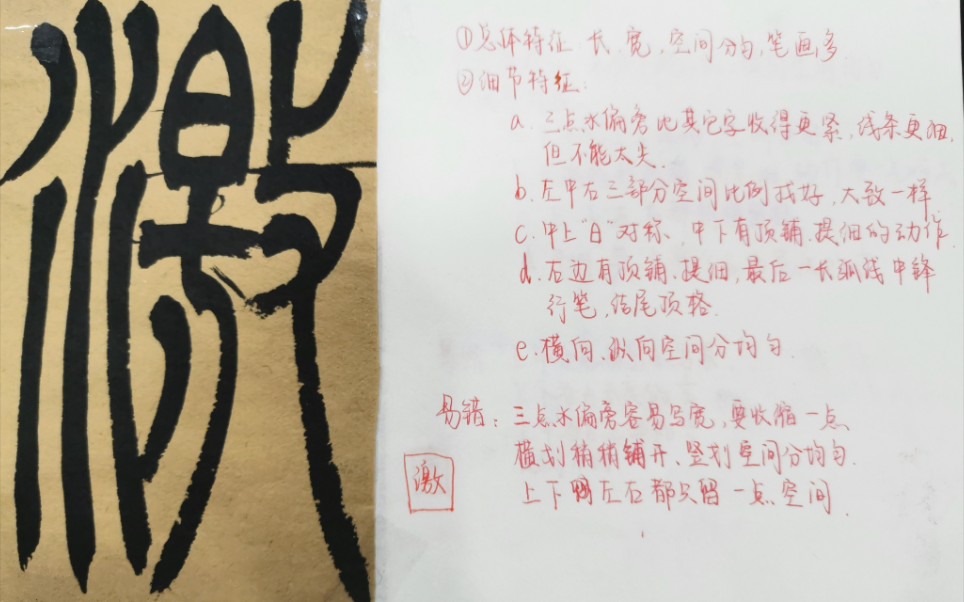 激
①总体特征 长、宽，空间分匀，笔画多
②细节特征：
a. 三点水偏旁比其它字收得更紧，线条更细，
但不能太尖.
b. 左中右三部分空间比例找好，大致一样
c. 中上“日”对称、中下有顶铺、提细的动作.
d. 右边有顶铺、提细，最后一长弧线中锋
行笔，结尾顶格.
e. 横向、纵向空间分均匀.
易错：三点水偏旁容易写宽，要收缩一点
横划稍稍铺开、竖划空间分均匀.
激
上下左右都只留一点空间.